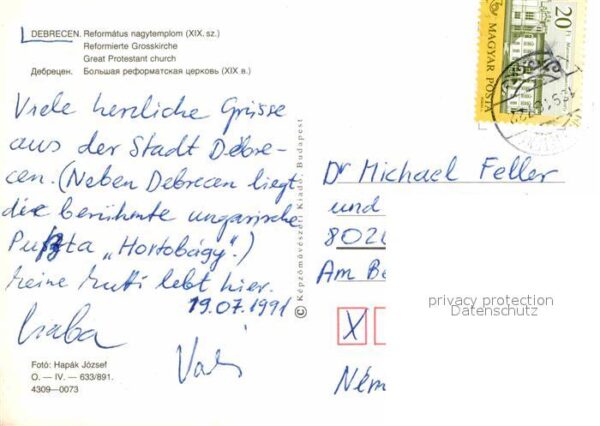 DEBRECEN. Református nagytemplom (XIX. sz.)
Reformierte Grosskirche
Great Protestant church
Дебрецен. Большая реформатская церковь (XIX в.)
Viele herzliche Grüsse
aus der Stadt Debre-
cen. (Neben Debrecen liegt
die berühmte ungarische
Puszta „Hortobágy".)
Meine Mutti lebt hier.
19.07.1991
Csaba
Fotó: Hapák József
O. — IV. — 633/891.
4309—0073
© Képzőművészeti Kiadó, Budapest
20 Ft
MAGYAR POSTA
Dr Michael Feller
und
Am Be
X
privacy protection
Datenschutz
Ném